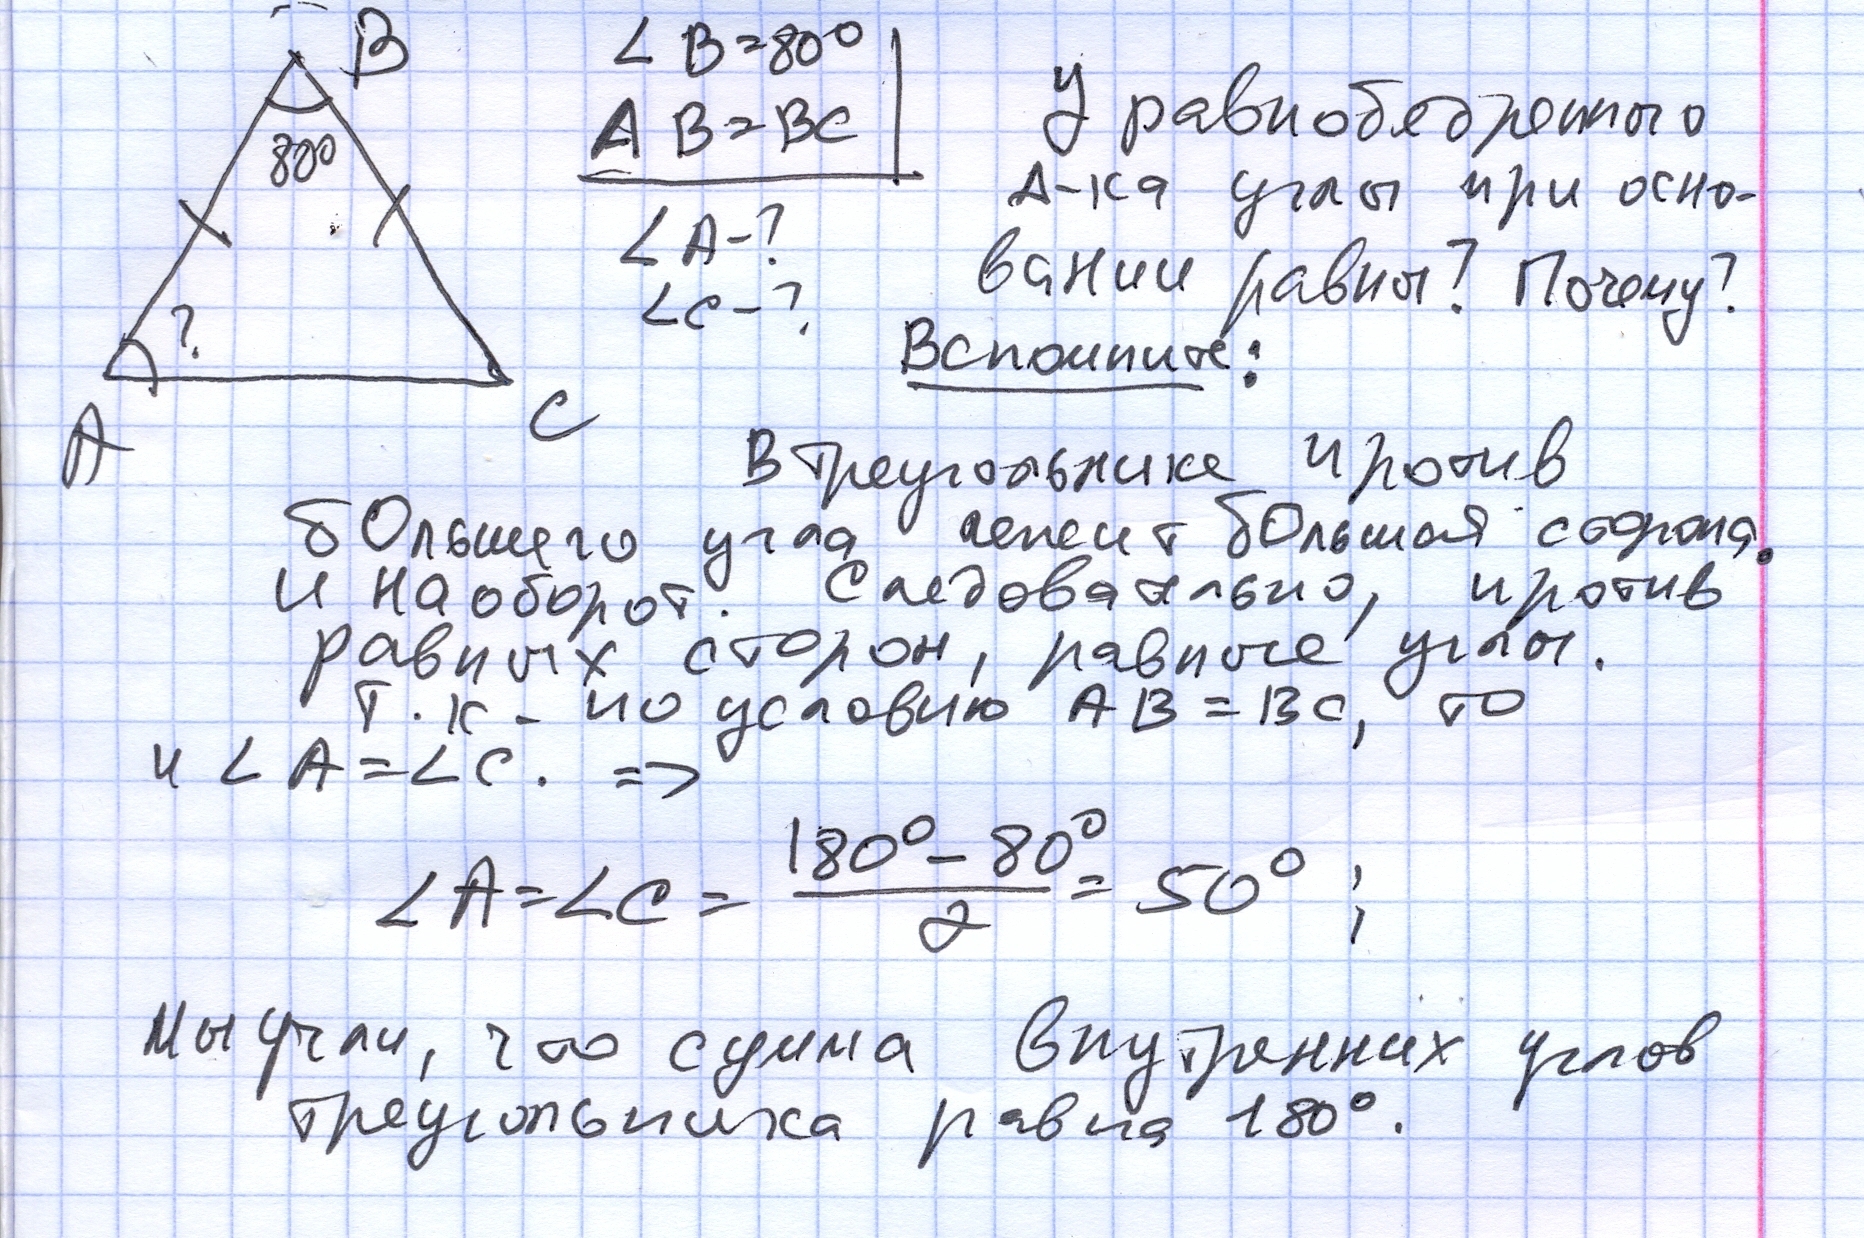 B
80°
?
A
C
∠B=80°
AB=BC
∠A-?
∠C-?
У равнобедренного
Δ-ка углы при осно-
вании равны? Почему?
Вспомните:
В треугольнике против
бОльшего угла лежит бОльшая сторона.
И наоборот. Следовательно, против
равных сторон, равные углы.
Т.к - по условию AB=BC, то
и ∠A=∠C. =>
∠A=∠C= (180°-80°)/2 = 50° ;
Мы учли, что сумма внутренних углов
треугольника равна 180°.